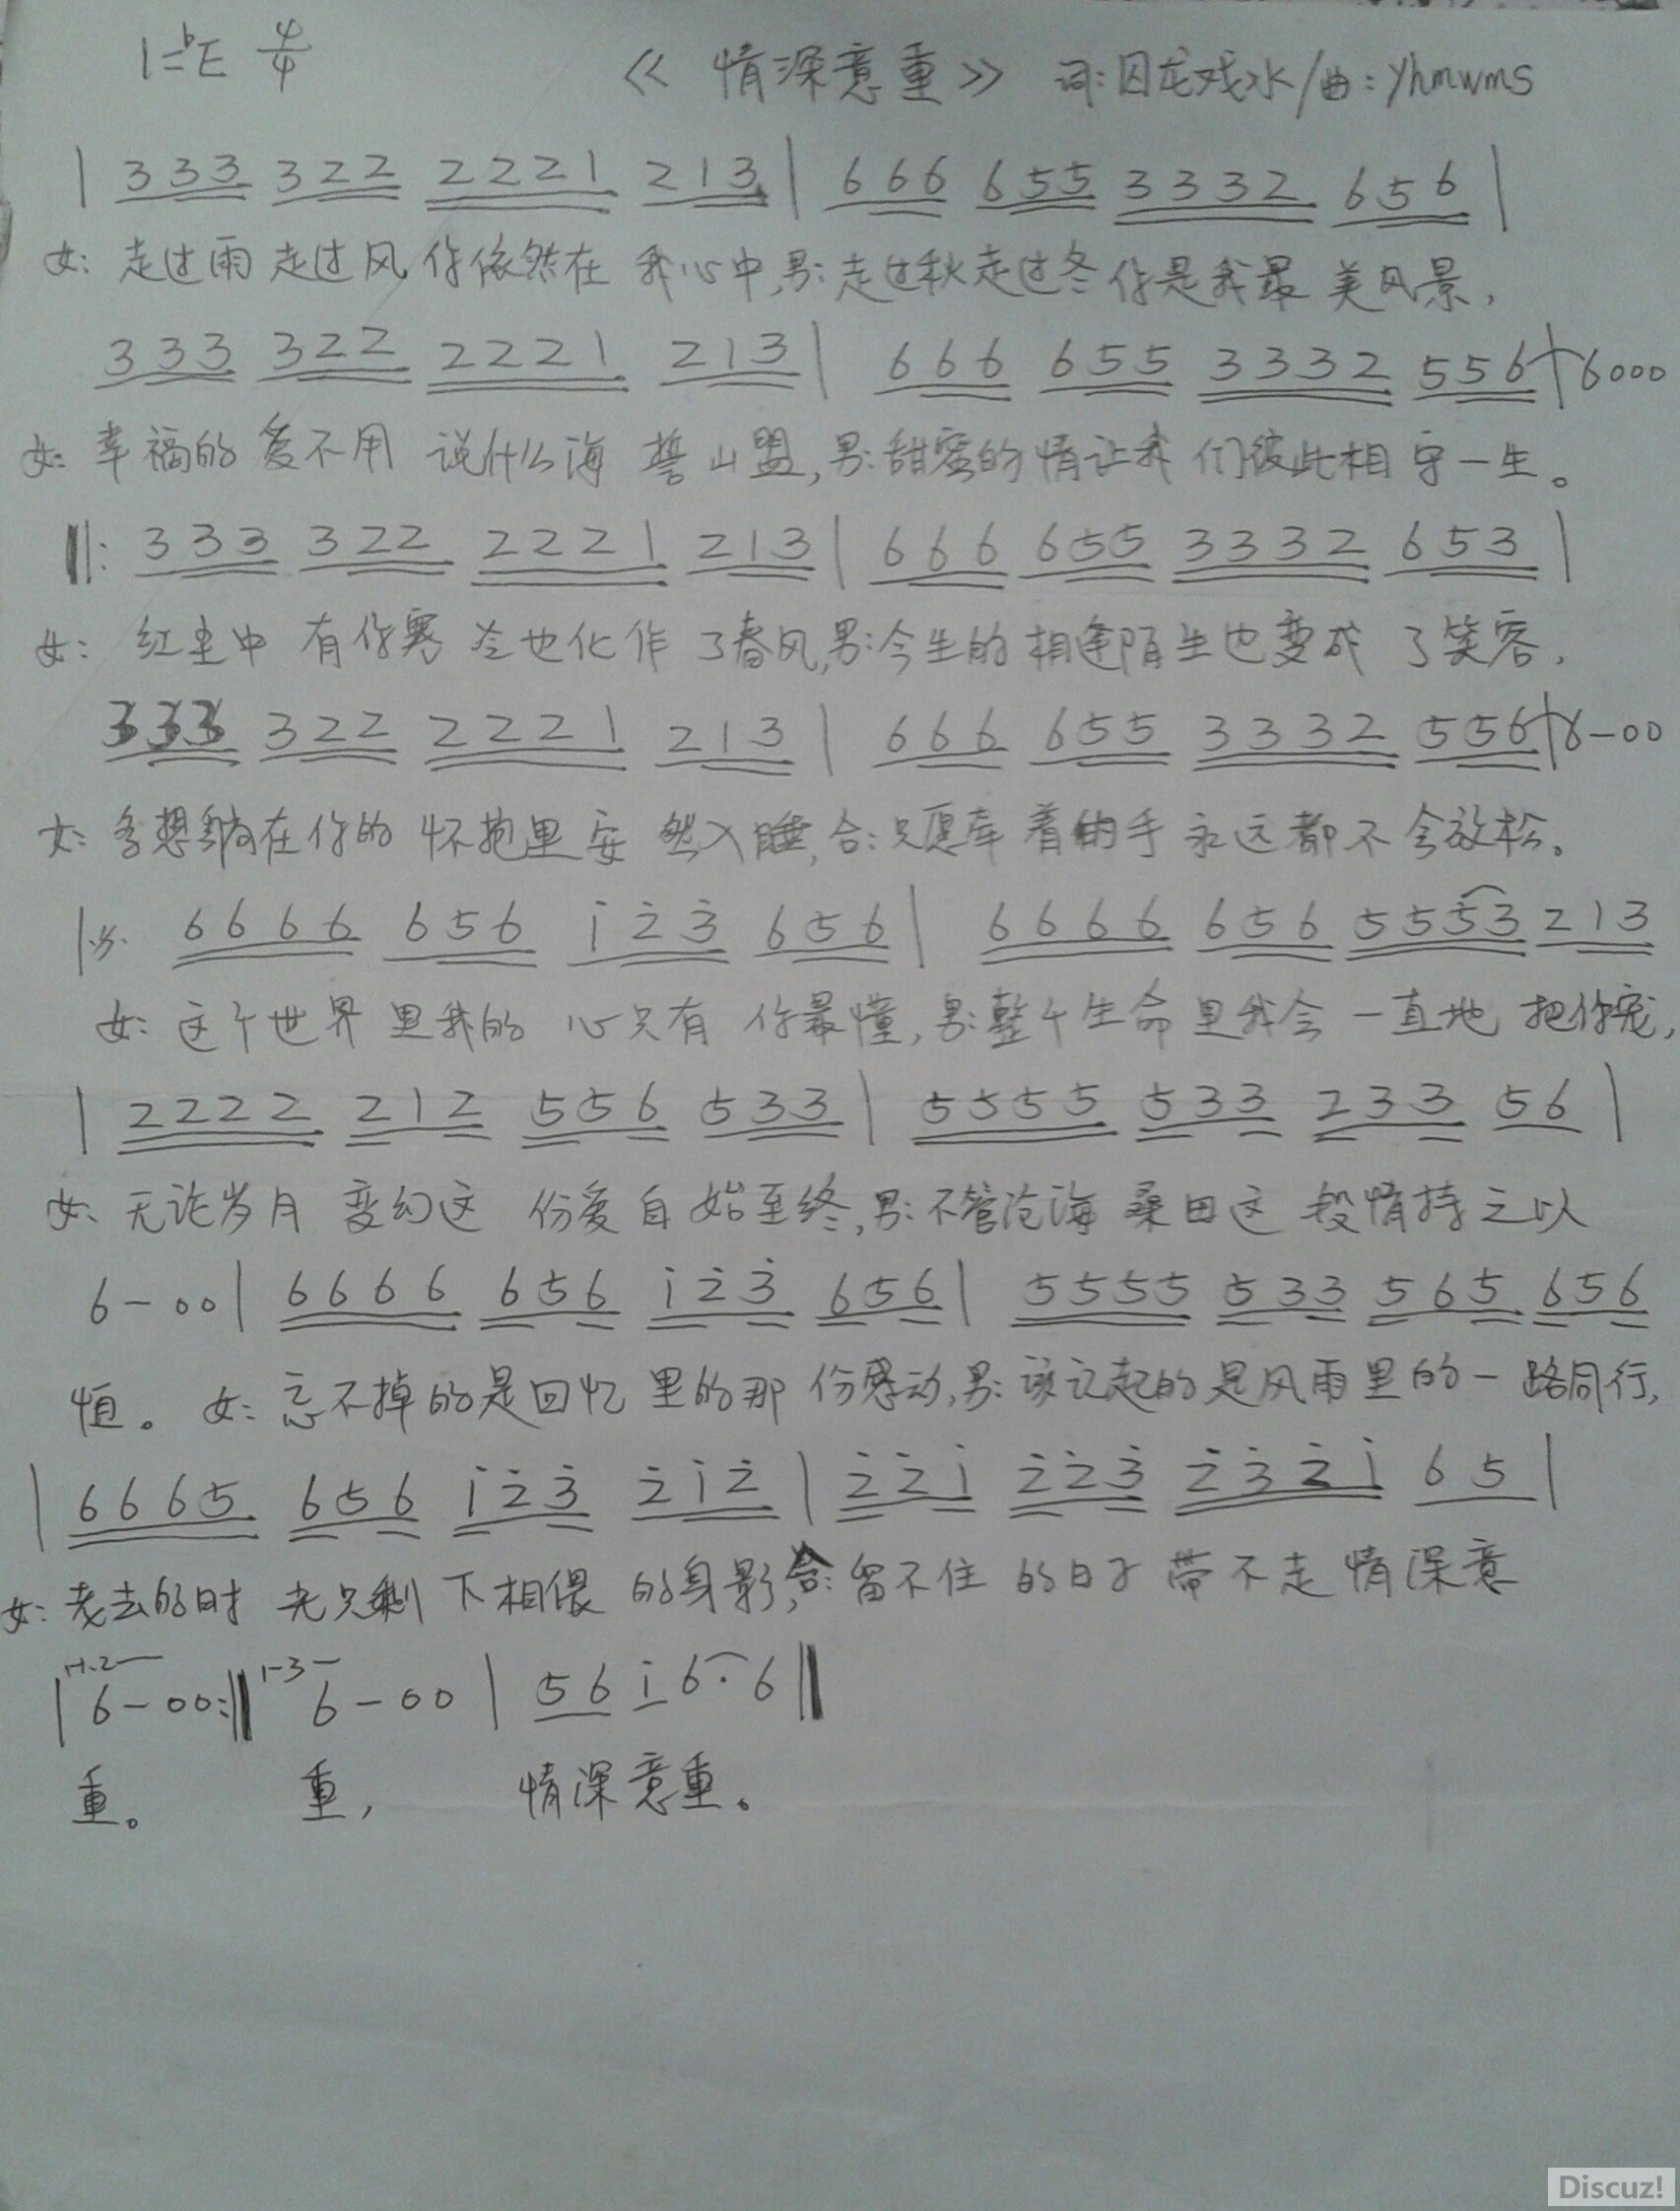 1=♭E 4/4 《情深意重》 词:囚龙戏水/曲:yhmwms
| 333 322 2221 213 | 666 655 3332 656 |
女: 走过雨 走过风 你依然在 我心中,男:走过秋走过冬 你是我最 美风景,
333 322 2221 213 | 666 655 3332 556 | 6000
女: 幸福的 爱不用 说什么海 誓山盟,男:甜蜜的情让我 们彼此相 守一生。
‖: 333 322 2221 213 | 666 655 3332 653 |
女: 红尘中 有你寒 冷也化作 了春风,男:今生的 相逢陌生也变成 了笑容,
333 322 2221 213 | 666 655 3332 556 | 6-00
女: 多想躺在你的 怀抱里安 然入睡,合:只愿牵 着的手 永远都不 会放松。
|※ 6666 656 i̇2̇3̇ 656 | 6666 656 5553 213
女: 这个世界 里我的 心只有 你最懂,男:整个生命里我会 一直地 把你宠,
| 2222 212 556 533 | 5555 533 233 56 |
女: 无论岁月 变幻这 份爱自 始至终,男:不管沧海 桑田这 段情持 之以
6-00 | 6666 656 i̇2̇3̇ 656 | 5555 533 565 656
恒。 女: 忘不掉的是回忆 里的那 份感动,男:该记起的是风雨里的一 路同行,
| 6665 656 i̇2̇3̇ 2̇i̇2̇ | 2̇2̇i̇ 2̇2̇3̇ 2̇3̇2̇i̇ 65 |
女: 老去的时 光只剩 下相偎 的身影,合:留不住 的日子 带不走 情深意
| 1.2 6-00 :‖ 1-3 6-00 | 56 i̇ 6· 6 ‖
重。 重, 情深意重。
Discuz!